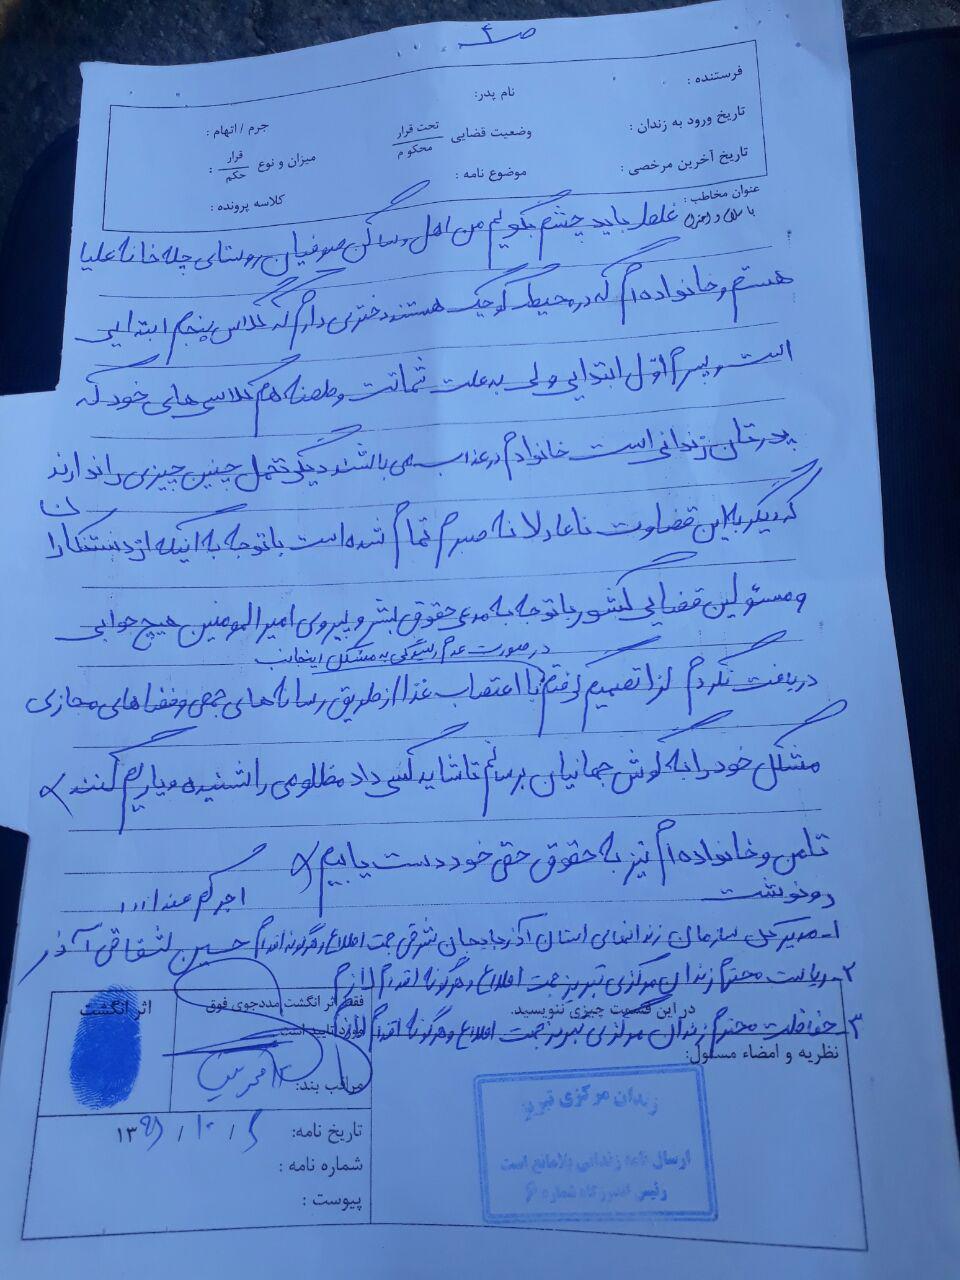 ص۴
فرستنده :
نام پدر:
تاریخ ورود به زندان :
وضعیت قضایی تحت قرار / محکوم
جرم / اتهام :
تاریخ آخرین مرخصی :
موضوع نامه :
میزان و نوع قرار / حکم :
کلاسه پرونده :
عنوان مخاطب :
با سلام و احترام
باید چشم بگویم من اهل و ساکن صوفیان روستای چله خانه علیا
هستم و خانواده ام که در محیط کوچک هستند دختری دارم که کلاس پنجم ابتدایی
است و پسرم اول ابتدایی ولی به علت شماتت و طعنه هم کلاسی های خود که
پدرتان زندانی است خانوادم در عذاب می باشند دیگر تحمل چنین چیزی را ندارند
که دیگر به این قضاوت ناعادلانه صبرم تمام شده است با توجه به اینکه از
و مسئولین قضایی کشور با توجه به مدعی حقوق بشر و پیروی امیرالمومنین هیچ جوابی
در صورت عدم رسیدگی به مشکل اینجانب
دریافت نکردم لذا تصمیم گرفتم با اعتصاب غذا از طریق رسانه های جمعی و فضاهای مجازی
مشکل خود را به گوش جهانیان برسانم تا شاید کسی داد مظلومی را شنیده و یاریم کنند
تا من و خانواده ام نیز به حقوق حقی خود دست یابیم
اجرکم عند الله
رونوشت
۱- مدیر کل سازمان زندانهای استان آذربایجان شرقی جهت اطلاع و هرگونه اقدام
حسین
آذر
۲- ریاست محترم زندان مرکزی تبریز جهت اطلاع و هرگونه اقدام لازم
۳- حفاظت محترم زندان مرکزی تبریز جهت اطلاع و هرگونه اقدام لازم
در این قسمت چیزی ننویسید.
نظریه و امضاء مسئول:
فقط اثر انگشت مددجوی فوق
مورد تایید است.
اثر انگشت
مراقب بند:
تاریخ نامه:
شماره نامه :
پیوست :
زندان مرکزی تبریز
ارسال نامه زندانی بلامانع است
رئیس اندرزگاه شماره